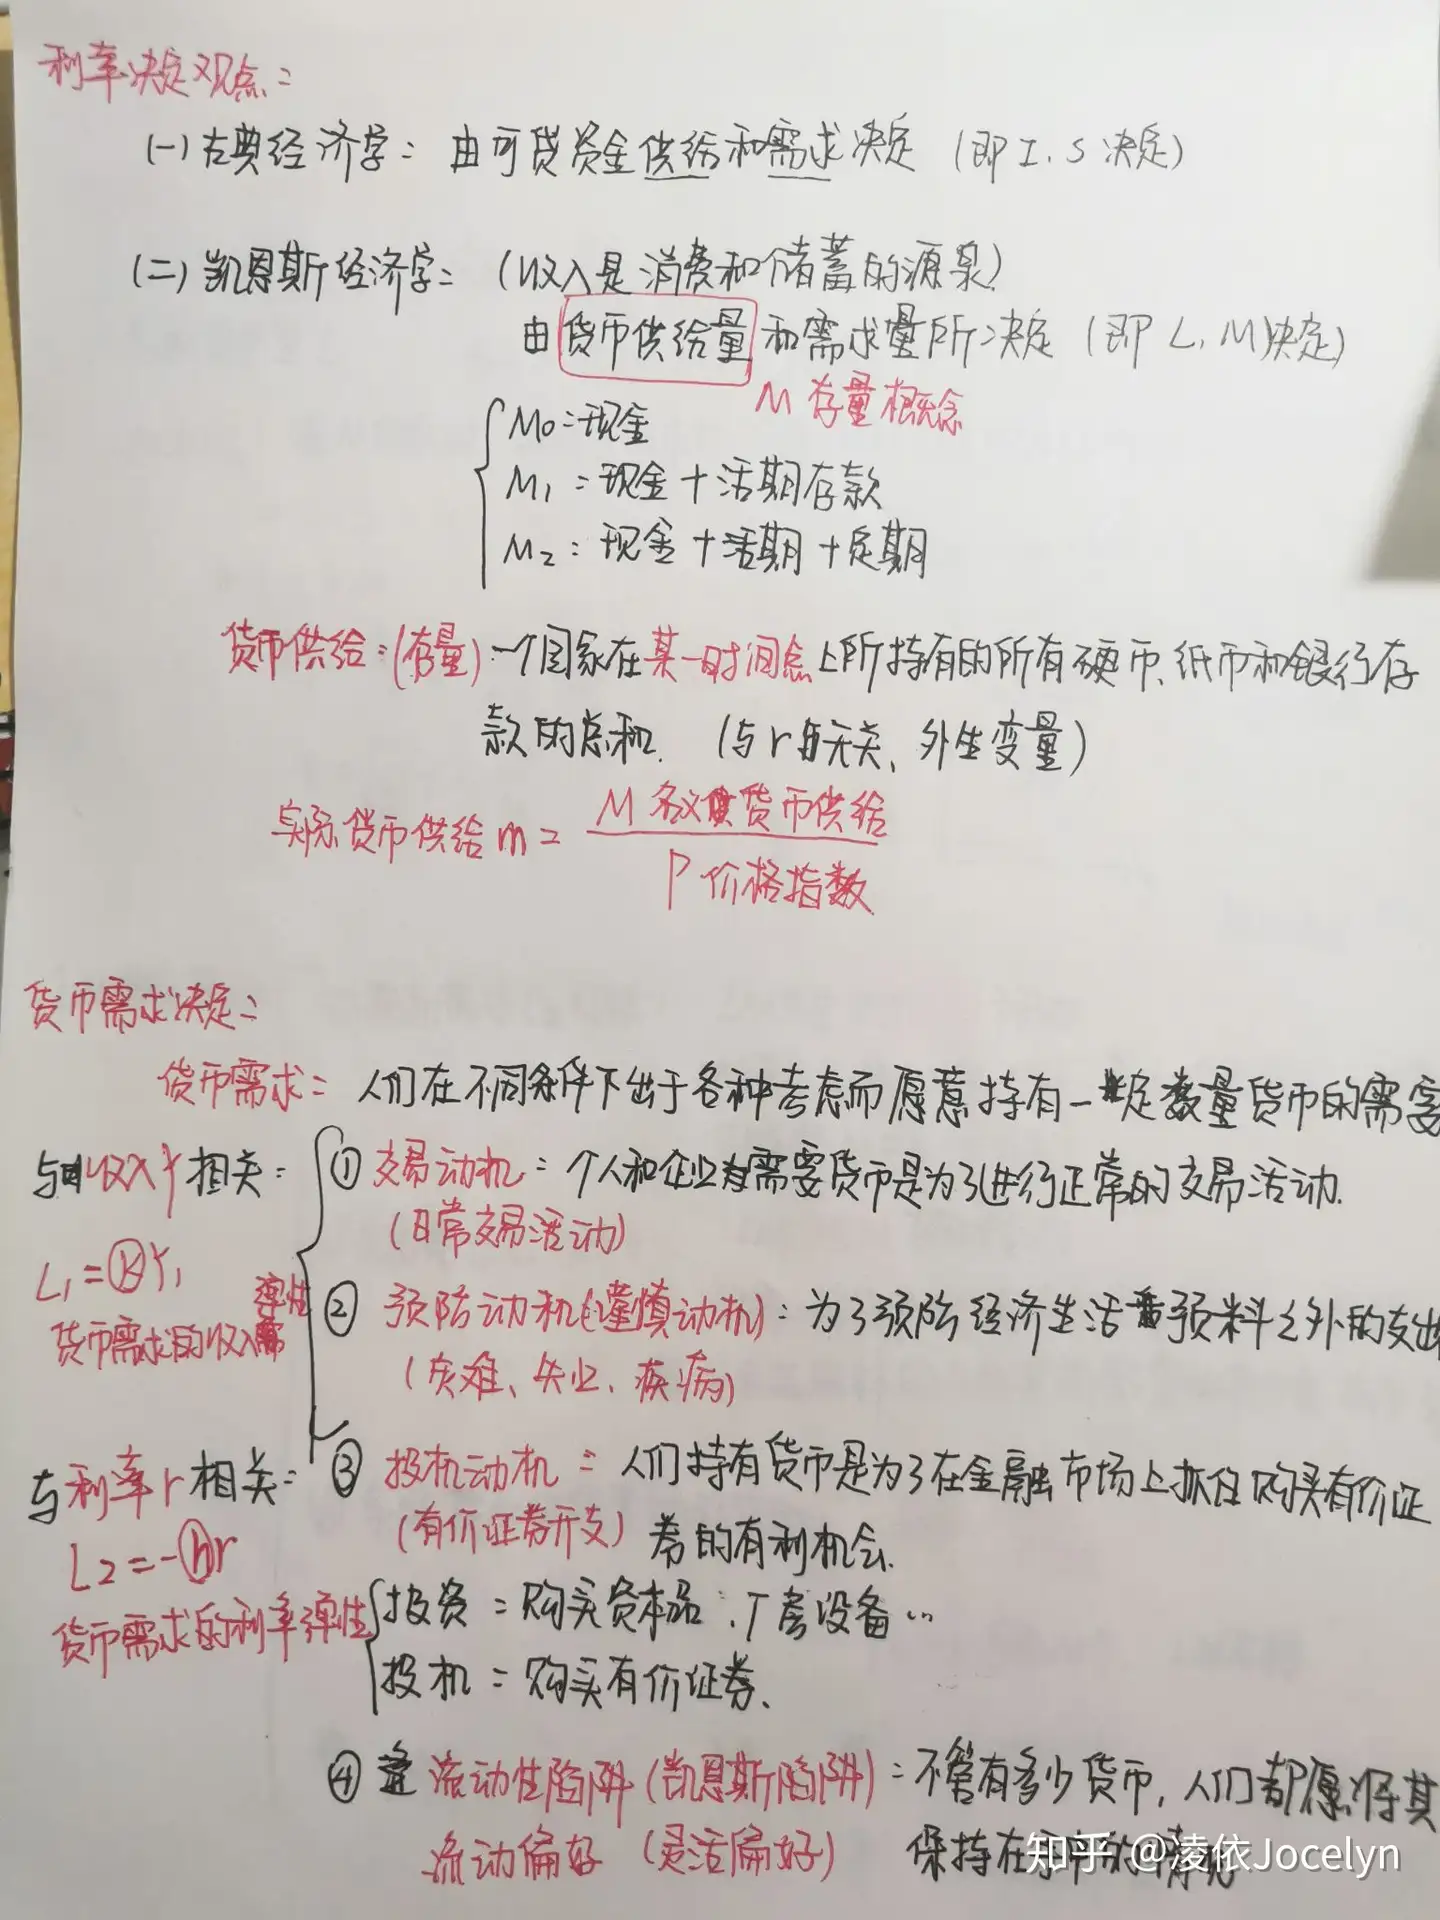 利率决定观点：
（一）古典经济学：由可贷资金供给和需求决定（即I、S决定）
（二）凯恩斯经济学：（收入是消费和储蓄的源泉）
由货币供给量和需求量所决定（即L、M决定）
M 存量概念
M0：现金
M1：现金＋活期存款
M2：现金＋活期＋定期
货币供给：（存量）一个国家在某一时间点上所持有的所有硬币、纸币和银行存
款的总和．（与r无关、外生变量）
实际货币供给 m = M 名义货币供给
P 价格指数
货币需求决定：
货币需求：人们在不同条件下出于各种考虑而愿意持有一定数量货币的需要
与收入Y相关：① 交易动机：个人和企业需要货币是为了进行正常的交易活动．
（日常交易活动）
L1=kY1
货币需求的收入弹性
② 预防动机（谨慎动机）：为了预防经济生活预料之外的支出
（灾难、失业、疾病）
与利率r相关：③ 投机动机：人们持有货币是为了在金融市场上抓住购买有价证
（有价证券开支）券的有利机会．
L2=-hr
货币需求的利率弹性
投资：购买资本品．厂房设备…
投机：购买有价证券．
④ 流动性陷阱（凯恩斯陷阱）：不管有多少货币，人们都愿将其
流动偏好（灵活偏好）保持在
知乎 @凌依Jocelyn